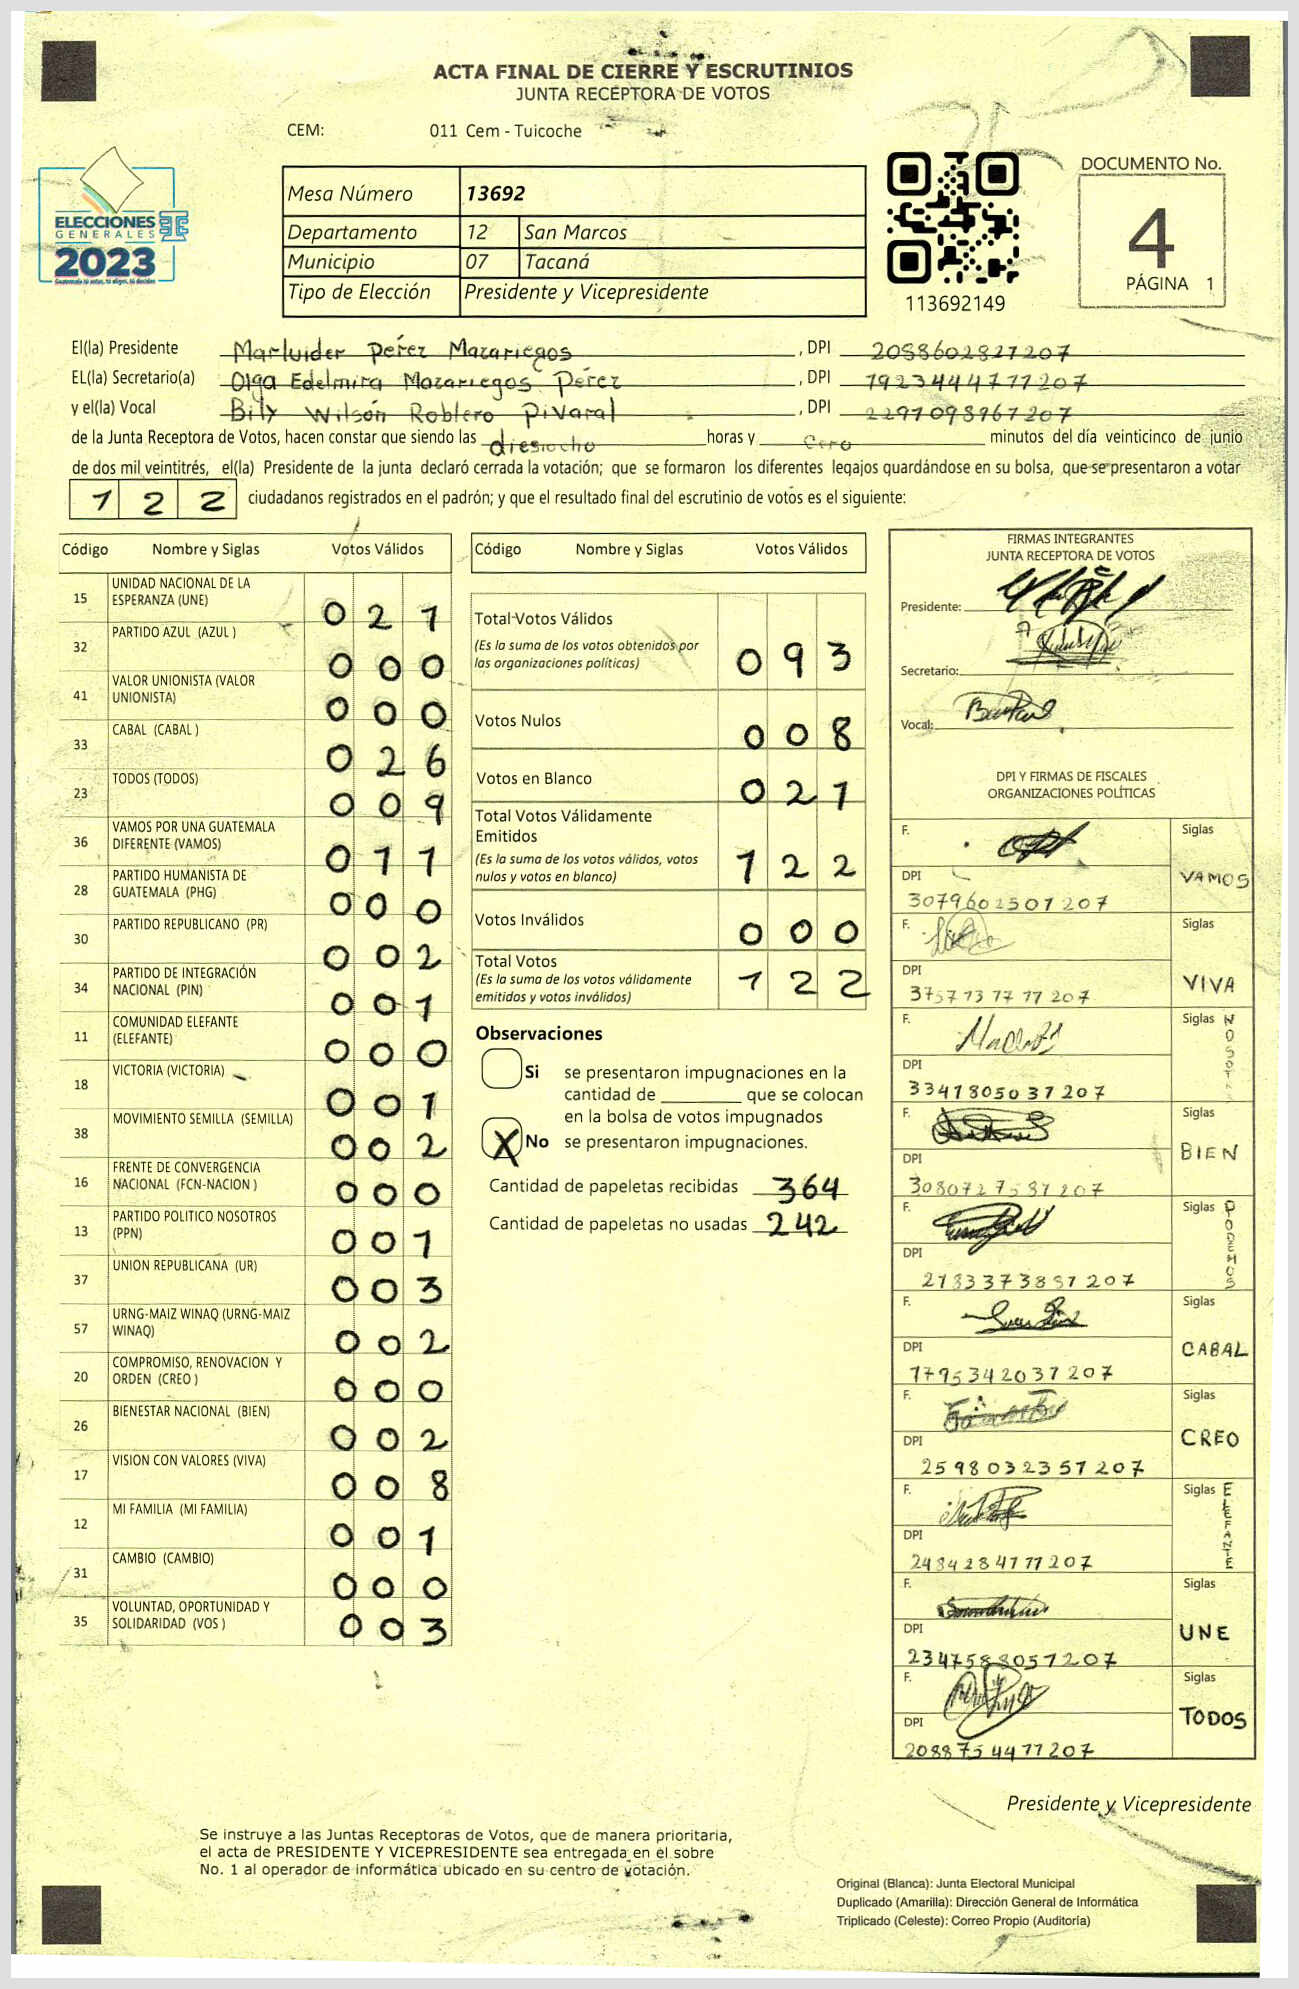 ACTA FINAL DE CIERRE Y ESCRUTINIOS
JUNTA RECEPTORA DE VOTOS
CEM: 011 Cem - Tuicoche
ELECCIONES
GENERALES
2023
Guatemala tú votas, tú eliges, tú decides
Mesa Número 13692
Departamento 12 San Marcos
Municipio 07 Tacaná
Tipo de Elección Presidente y Vicepresidente
113692149
DOCUMENTO No.
4
PÁGINA 1
El(la) Presidente Marluider Pérez Mazariegos, DPI 2058602827207
EL(la) Secretario(a) Olga Edelmira Mazariegos Pérez, DPI 1923444771207
y el(la) Vocal Bily Wilsón Roblero Pivaral, DPI 2297098967207
de la Junta Receptora de Votos, hacen constar que siendo las diesiocho horas y Cero minutos del día veinticinco de junio
de dos mil veintitrés, el(la) Presidente de la junta declaró cerrada la votación; que se formaron los diferentes legajos guardándose en su bolsa, que se presentaron a votar
122 ciudadanos registrados en el padrón; y que el resultado final del escrutinio de votos es el siguiente:
Código Nombre y Siglas Votos Válidos
15 UNIDAD NACIONAL DE LA ESPERANZA (UNE) 021
32 PARTIDO AZUL (AZUL ) 000
41 VALOR UNIONISTA (VALOR UNIONISTA) 000
33 CABAL (CABAL ) 026
23 TODOS (TODOS) 009
36 VAMOS POR UNA GUATEMALA DIFERENTE (VAMOS) 011
28 PARTIDO HUMANISTA DE GUATEMALA (PHG) 000
30 PARTIDO REPUBLICANO (PR) 002
34 PARTIDO DE INTEGRACIÓN NACIONAL (PIN) 001
11 COMUNIDAD ELEFANTE (ELEFANTE) 000
18 VICTORIA (VICTORIA) 001
38 MOVIMIENTO SEMILLA (SEMILLA) 002
16 FRENTE DE CONVERGENCIA NACIONAL (FCN-NACION ) 000
13 PARTIDO POLITICO NOSOTROS (PPN) 001
37 UNION REPUBLICANA (UR) 003
57 URNG-MAIZ WINAQ (URNG-MAIZ WINAQ) 002
20 COMPROMISO, RENOVACION Y ORDEN (CREO ) 000
26 BIENESTAR NACIONAL (BIEN) 002
17 VISION CON VALORES (VIVA) 008
12 MI FAMILIA (MI FAMILIA) 001
31 CAMBIO (CAMBIO) 000
35 VOLUNTAD, OPORTUNIDAD Y SOLIDARIDAD (VOS ) 003
Código Nombre y Siglas Votos Válidos
Total Votos Válidos 093
(Es la suma de los votos obtenidos por las organizaciones políticas)
Votos Nulos 008
Votos en Blanco 021
Total Votos Válidamente Emitidos 122
(Es la suma de los votos válidos, votos nulos y votos en blanco)
Votos Inválidos 000
Total Votos 122
(Es la suma de los votos válidamente emitidos y votos inválidos)
Observaciones
Si se presentaron impugnaciones en la
cantidad de ________ que se colocan
en la bolsa de votos impugnados
X No se presentaron impugnaciones.
Cantidad de papeletas recibidas 364
Cantidad de papeletas no usadas 242
FIRMAS INTEGRANTES
JUNTA RECEPTORA DE VOTOS
Presidente:
Secretario:
Vocal:
DPI Y FIRMAS DE FISCALES
ORGANIZACIONES POLÍTICAS
F. Siglas VAMOS
DPI 3079602501207
F. Siglas VIVA
DPI 3757737777207
F. Siglas
DPI 3341805037207
F. Siglas BIEN
DPI 3080727587207
F. Siglas PODEMOS
DPI 2783373857207
F. Siglas CABAL
DPI 1795342037207
F. Siglas CREO
DPI 2598032357207
F. Siglas ELEFANTE
DPI 2484284177207
F. Siglas UNE
DPI 2347588057207
F. Siglas TODOS
DPI 2088754477207
Presidente y Vicepresidente
Se instruye a las Juntas Receptoras de Votos, que de manera prioritaria,
el acta de PRESIDENTE Y VICEPRESIDENTE sea entregada en el sobre
No. 1 al operador de informática ubicado en su centro de votación.
Original (Blanca): Junta Electoral Municipal
Duplicado (Amarilla): Dirección General de Informática
Triplicado (Celeste): Correo Propio (Auditoría)